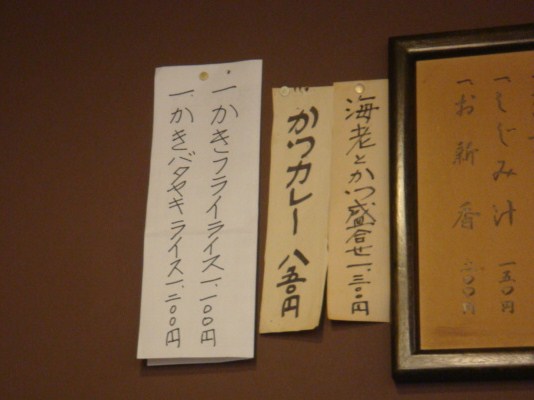 一しじみ汁 一五〇円
一お新香 二〇〇円
海老とかつ盛合せ一、三〇〇円
かつカレー 八五〇円
一かきフライライス一、一〇〇円
一かきバタヤキライス一、二〇〇円